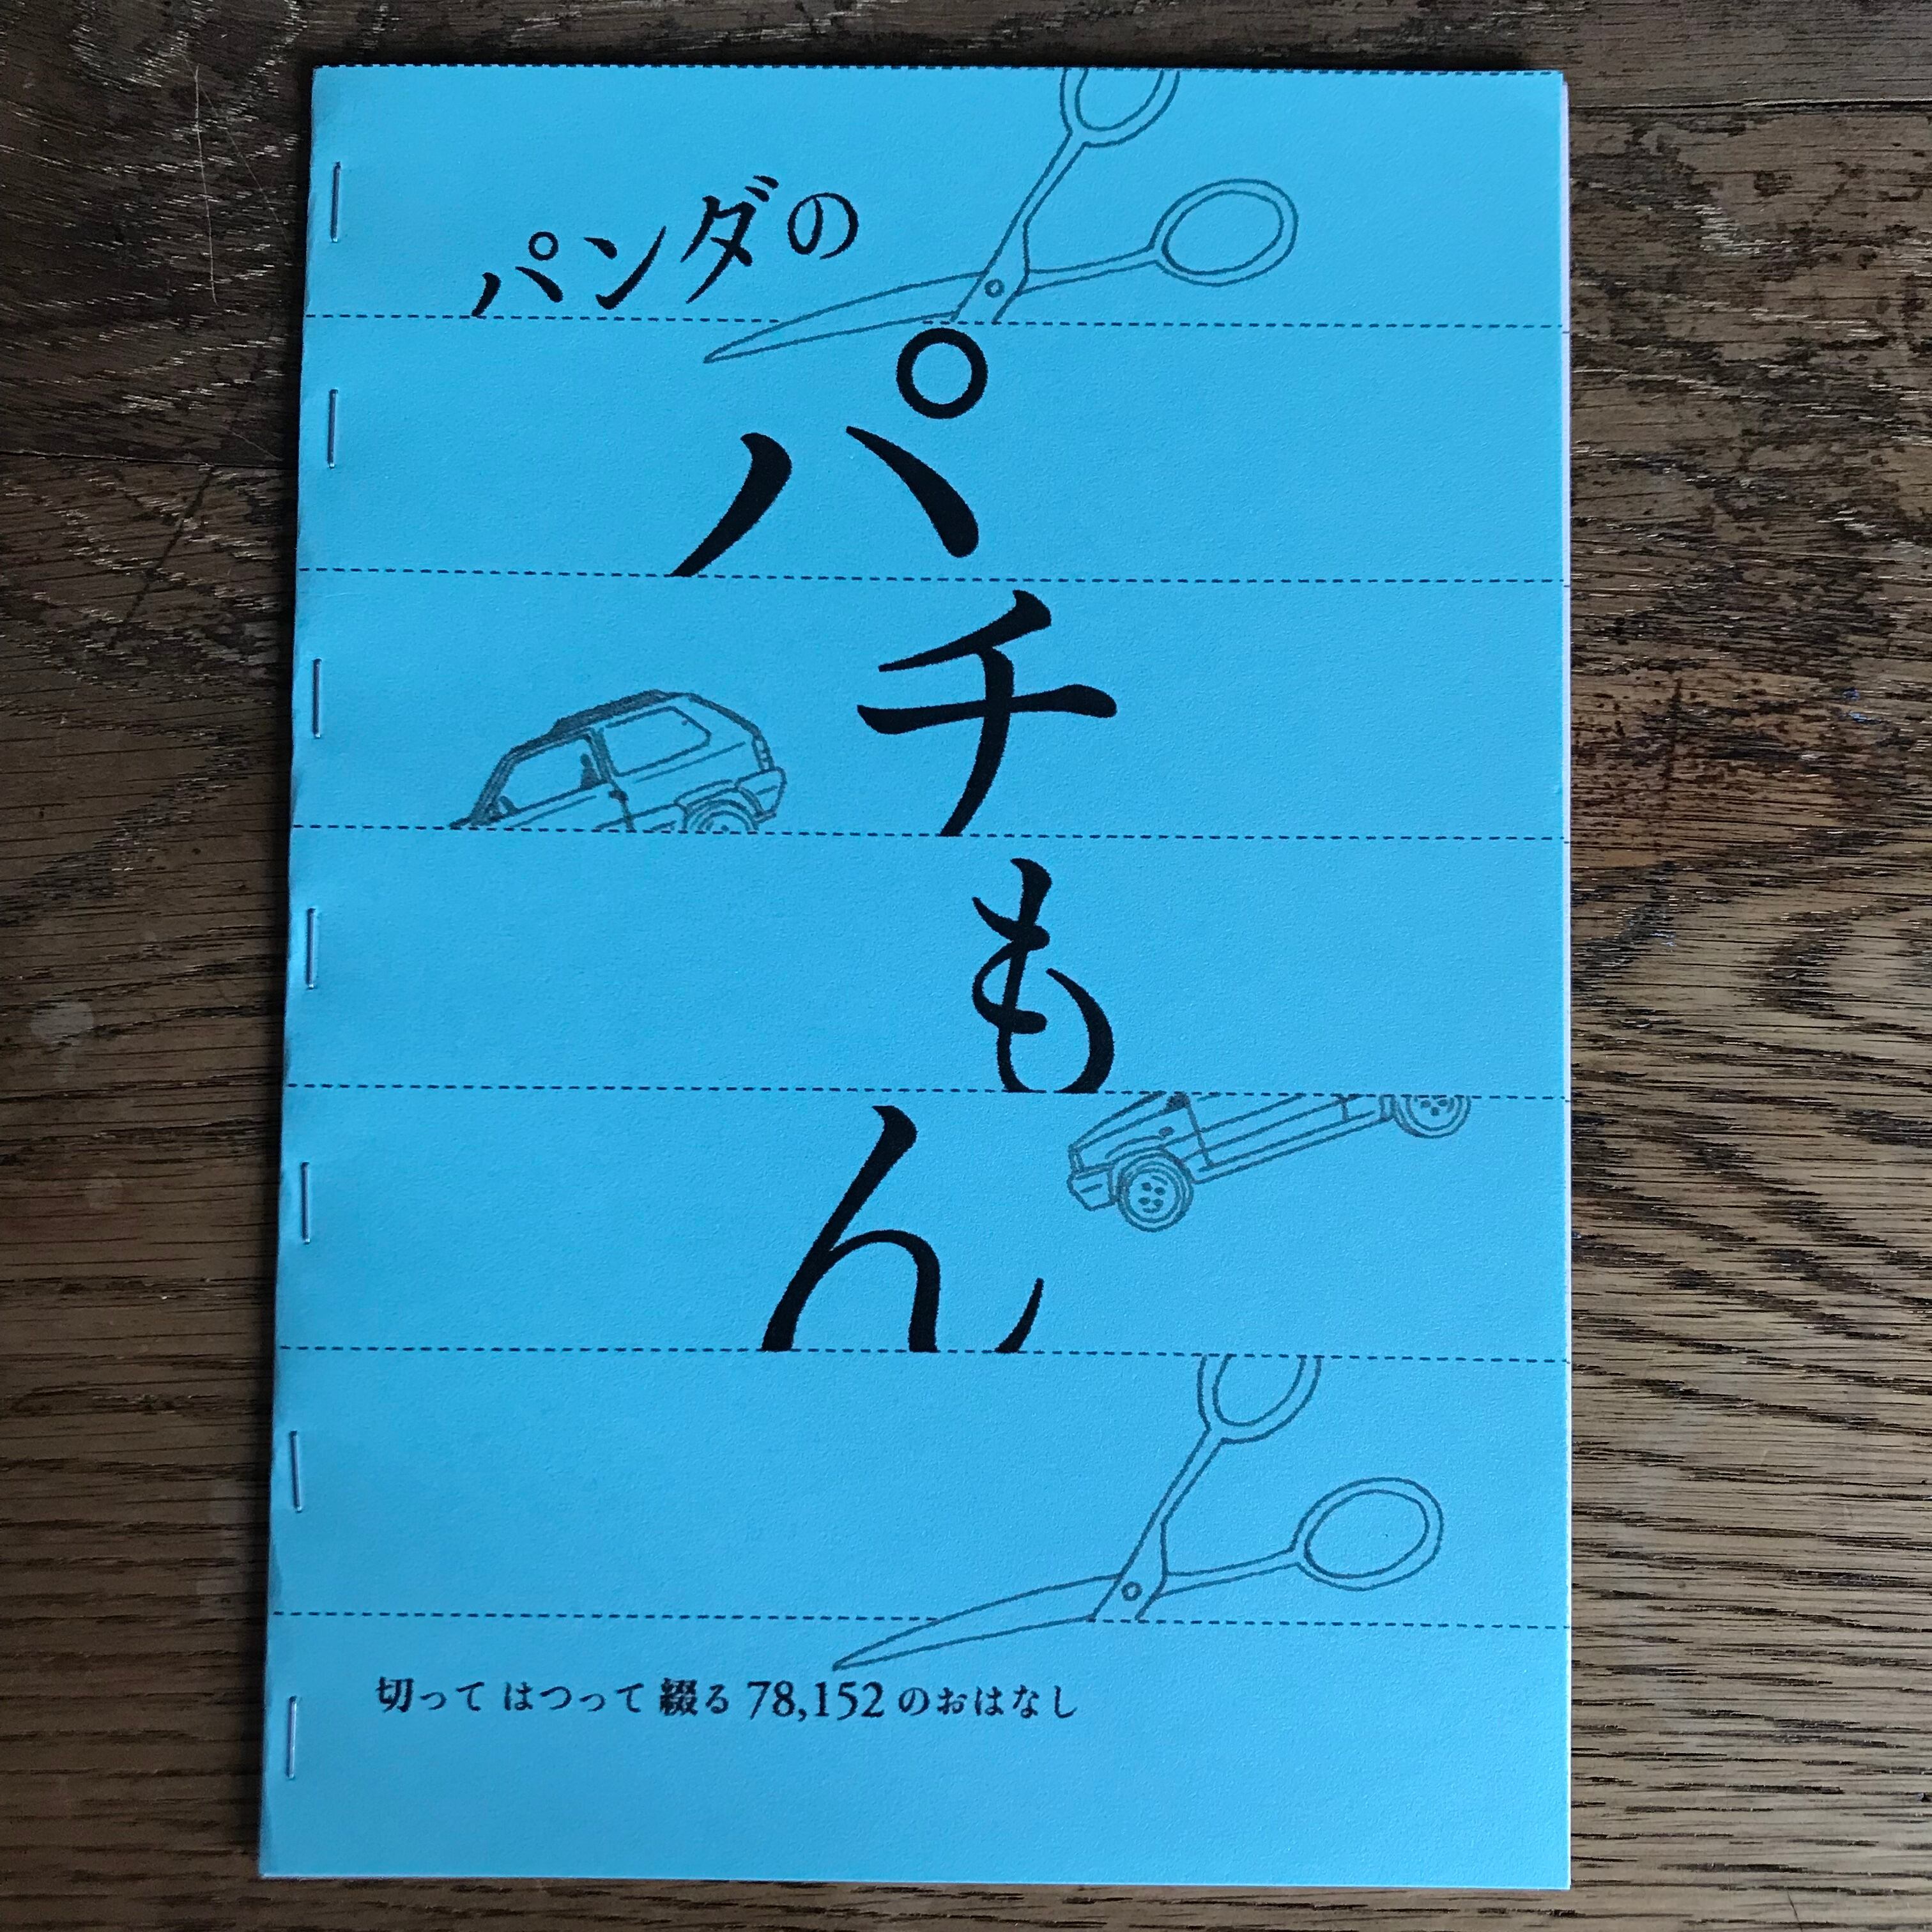 パンダの
パチもん
切って はつって 綴る 78,152 のおはなし